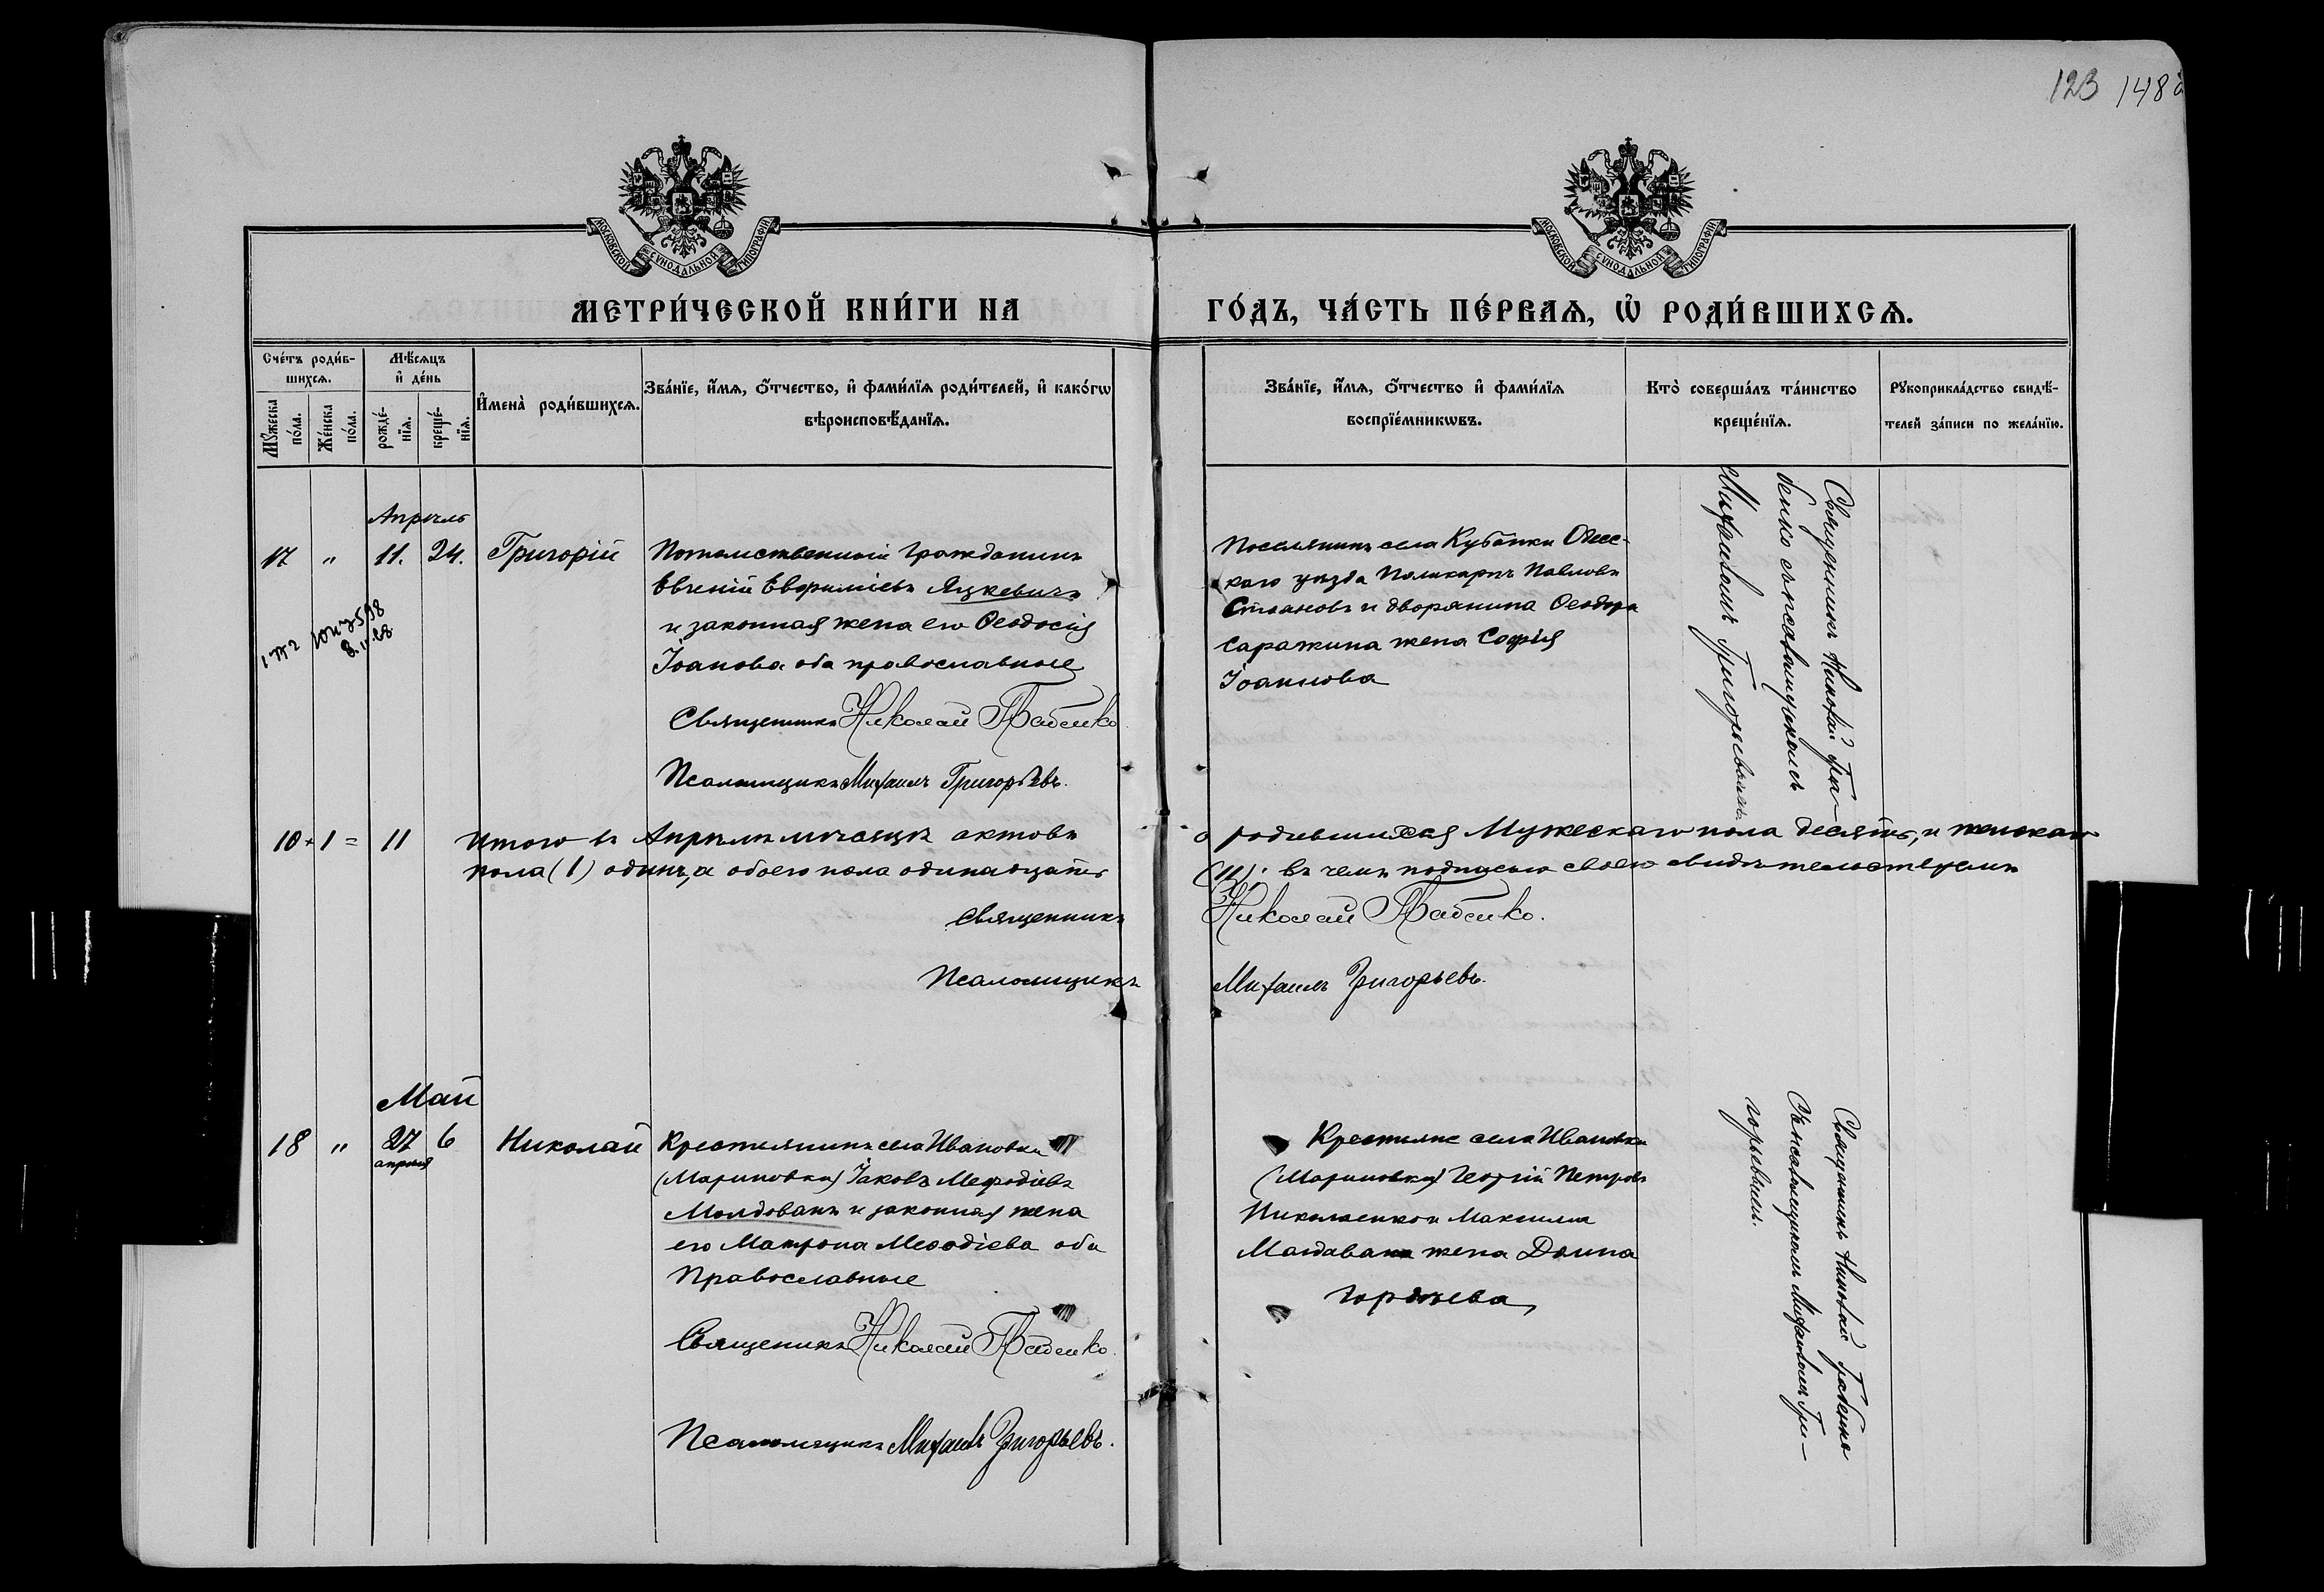 123 148
МОСКОВСКОЙ СѴНОДАЛЬНОЙ ТИПОГРАФІИ
МОСКОВСКОЙ СѴНОДАЛЬНОЙ ТИПОГРАФІИ
МЕТРИ́ЧЕСКОЙ КНИ́ГИ НА ГО́ДЪ, ЧА́СТЬ ПЕ́РВАѦ, Ѡ РОДИ́ВШИХСѦ.
Сче́тъ роди́в-
шихсѧ.
Мꙋ́жеска по́ла.
Же́нска по́ла.
Мѣ́сѧцъ
и҆ де́нь
рожде́-
нїѧ.
креще́-
нїѧ.
И҆мена̀ роди́вшихсѧ.
Зва́нїе, и҆́мѧ, ѻ҆́тчество, и҆ фами́лїѧ роди́телей, и҆ како́гѡ
вѣроисповѣ́данїѧ.
Зва́нїе, и҆́мѧ, ѻ҆́тчество и҆ фами́лїѧ
воспрїе́мникѡвъ.
Кто̀ соверша́лъ та́инство
креще́нїѧ.
Рꙋкоприкла́дство свидѣ́-
телей за́писи по жела́нїю.
Апрѣль
17 " 11. 24. Григорій
Потомственный гражданинъ
Евгеній Евфиміевъ Яцкевичъ
и законная жена его Ѳеодосія
Іоанова оба православные
Священникъ Николай Грабенко
Псаломщикъ Михаилъ Григорьевъ.
Поселянинъ села Кубанки Одес-
каго уѣзда Поликарпъ Павловъ
Стоановъ и дворянина Ѳеодора
Саражина жена Софія
Іоаннова
Священникъ Николай Гра-
бенко съ псаломщикомъ
Михаиломъ Григорьевымъ.
10 + 1 = 11 Итого въ Апрѣлѣ мѣсяцѣ актовъ о родившихся Мужескаго пола десять, и женскаго
пола (1) одинъ, а обоего пола одинадцать (11); въ чемъ подписью своею свидѣтельствуемъ
Священникъ Николай Грабенко.
Псаломщикъ Михаилъ Григорьевъ.
Май
18 " 27 6 Николай
апрѣля
Крестьянинъ села Ивановки
(Мариновки) Іаковъ Меѳодіевъ
Молдованъ и законная жена
его Матрона Меѳодіева оба
Православные
Священникъ Николай Грабенко.
Псаломщикъ Михаилъ Григорьевъ.
Крестьяне села Ивановки
(Мариновки) Георгій Петровъ
Николаенко и Максима
Магдавана жена Домна
Гордѣева
Священникъ Николай Грабенко
съ псаломщикомъ Михаиломъ Гри-
горьевымъ.